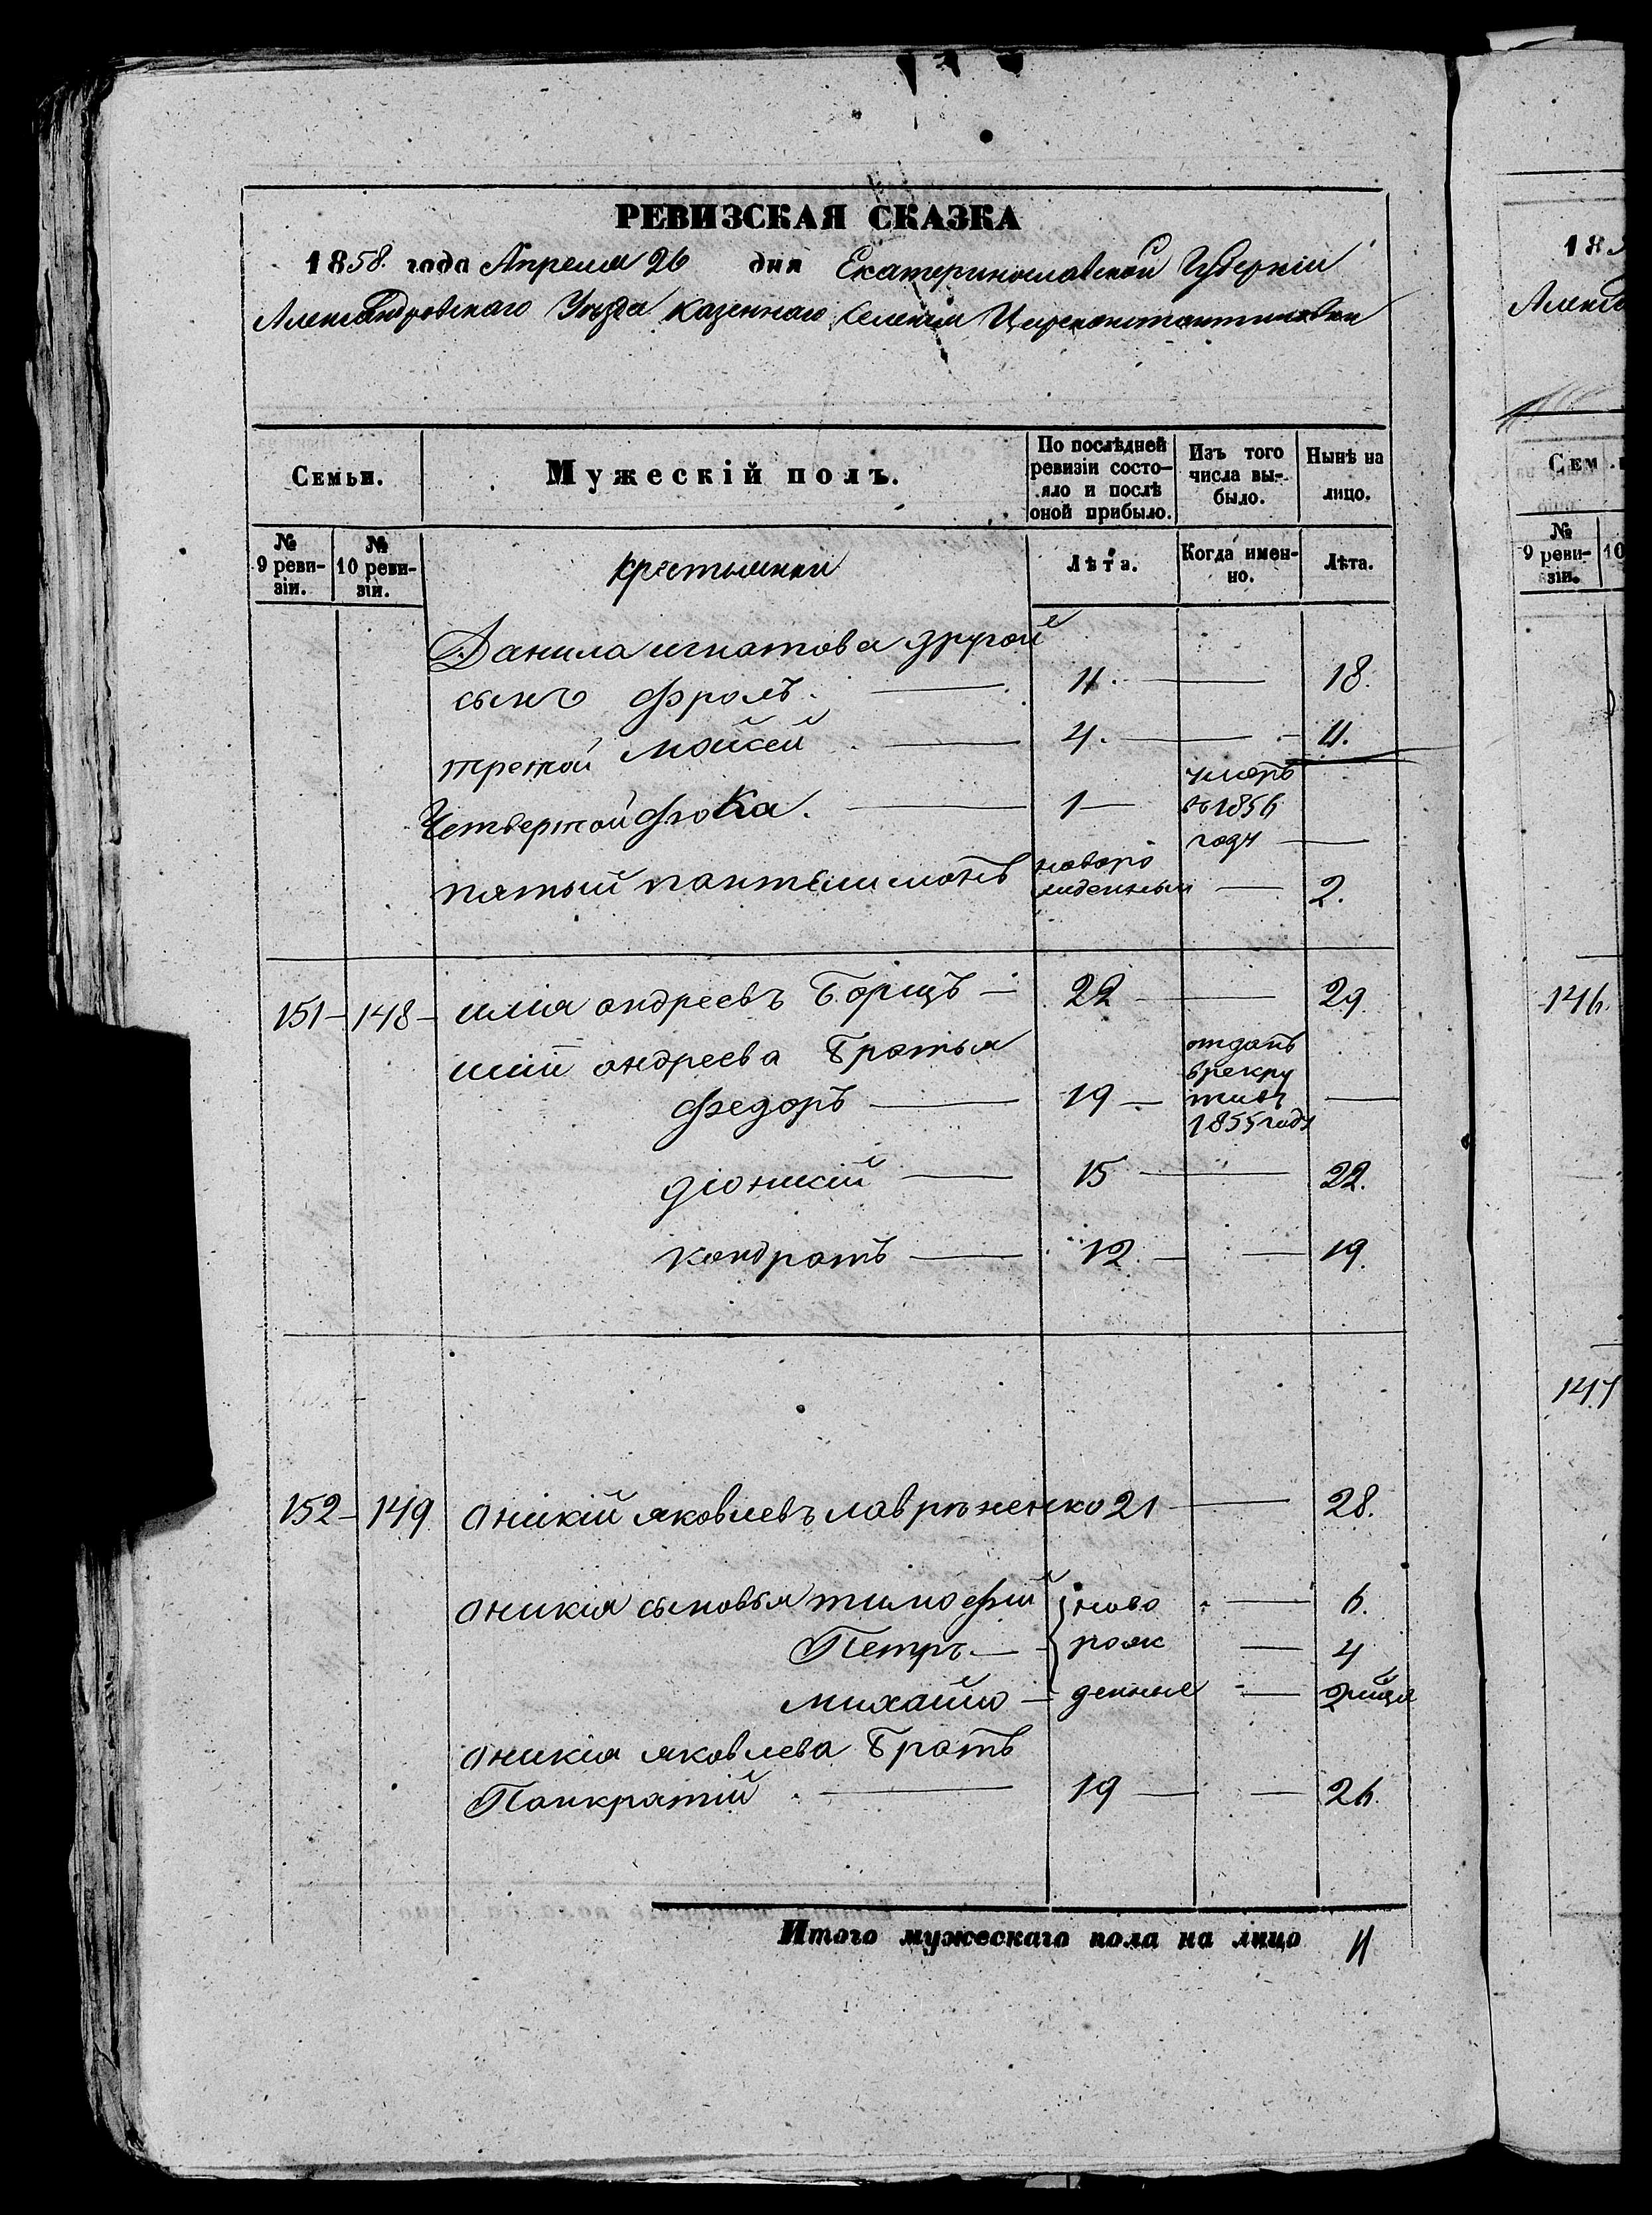 РЕВИЗСКАЯ СКАЗКА
1858. года Апреля 26 дня Екатеринославской Губернiи
Александровскаго Уезда казеннаго Селенiя Цареконстантиновки
Семьи.
Мужескiй полъ.
По послѣдней ревизiи состо-яло и послѣ оной прибыло.
Изъ того числа вы-было.
Нынѣ на лицо.
№ 9 реви-зiи.
№ 10 реви-зiи.
крестьянки
Лѣта.
Когда имен-но.
Лѣта.
Данила игнатова другой
сынъ фролъ. — 11. — 18.
третой мойсей — 4. — 11.
Четвертой фока. — 1 — умеръ въ 1856 году —
пятый пантелимонъ новорожденный — 2.
151 — 148 — илiя андреевъ Борщъ — 22 — 29.
илiи андреева Братья
федоръ — 19 — отданъ в рекруты 1855 году —
дiонисiй — 15 — 22.
кондратъ — 12. — 19.
152 — 149 оникiй яковлевъ лаврѣненко 21 — 28.
оникiя сыновья тимофiй ново — 6.
Петръ — рож — 4
михайло — денные — 2 мѣця
оникiя яковлева Братъ
Панкратiй — 19 — 26.
Итого мужескаго пола на лицо 11
183
Алекса
Сем
№ 9 реви-зiи.
10
146.
147